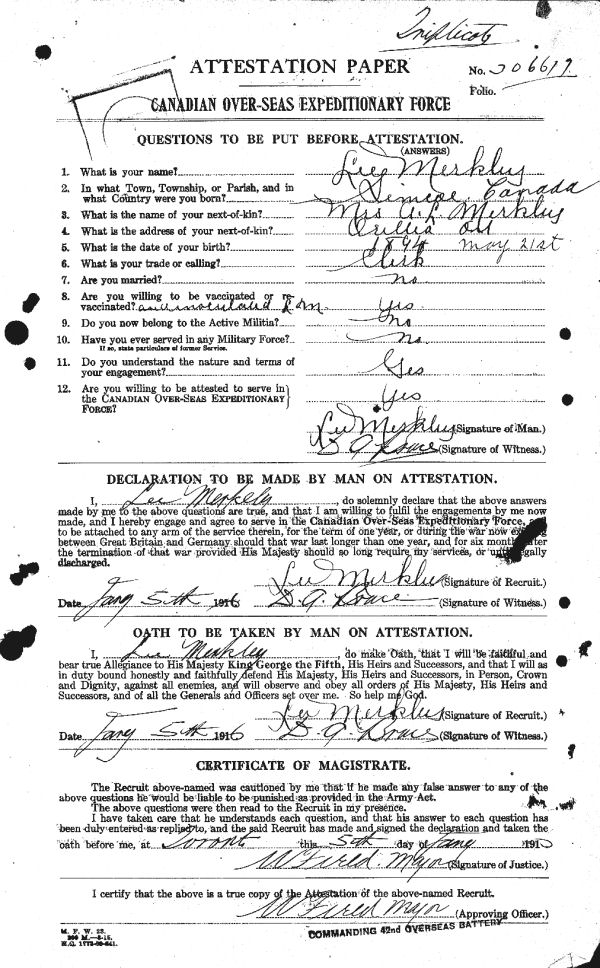 Triplicate
ATTESTATION PAPER
No. 306619
Folio.
CANADIAN OVER-SEAS EXPEDITIONARY FORCE
QUESTIONS TO BE PUT BEFORE ATTESTATION.
(ANSWERS)
1. What is your name? Lee Merkley
2. In what Town, Township, or Parish, and in what Country were you born? Simcoe, Canada
3. What is the name of your next-of-kin? Mrs A. L. Merkley
4. What is the address of your next-of-kin? Orillia Ont
5. What is the date of your birth? 1894 May 21st
6. What is your trade or calling? Clerk
7. Are you married? No
8. Are you willing to be vaccinated or re-vaccinated? and inoculated Yes
9. Do you now belong to the Active Militia? No
10. Have you ever served in any Military Force? No
If so, state particulars of former Service.
11. Do you understand the nature and terms of your engagement? Yes
12. Are you willing to be attested to serve in the CANADIAN OVER-SEAS EXPEDITIONARY FORCE? Yes
Lee Merkley (Signature of Man.)
(Signature of Witness.)
DECLARATION TO BE MADE BY MAN ON ATTESTATION.
I, Lee Merkley, do solemnly declare that the above answers
made by me to the above questions are true, and that I am willing to fulfil the engagements by me now
made, and I hereby engage and agree to serve in the Canadian Over-Seas Expeditionary Force, and
to be attached to any arm of the service therein, for the term of one year, or during the war now
between Great Britain and Germany should that war last longer than one year, and for six months after
the termination of that war provided His Majesty should so long require my services, or until legally
discharged.
Lee Merkley (Signature of Recruit.)
Date Jany 5th 1916 (Signature of Witness.)
OATH TO BE TAKEN BY MAN ON ATTESTATION.
I, Lee Merkley, do make Oath, that I will be faithful and
bear true Allegiance to His Majesty King George the Fifth, His Heirs and Successors, and that I will as
in duty bound honestly and faithfully defend His Majesty, His Heirs and Successors, in Person, Crown
and Dignity, against all enemies, and will observe and obey all orders of His Majesty, His Heirs and
Successors, and of all the Generals and Officers set over me. So help me God.
Lee Merkley (Signature of Recruit.)
Date Jany 5th 1916 (Signature of Witness.)
CERTIFICATE OF MAGISTRATE.
The Recruit above-named was cautioned by me that if he made any false answer to any of the
above questions he would be liable to be punished as provided in the Army Act.
The above questions were then read to the Recruit in my presence.
I have taken care that he understands each question, and that his answer to each question has
been duly entered as replied to, and the said Recruit has made and signed the declaration and taken the
oath before me, at Toronto this 5th day of Jany 191
Major (Signature of Justice.)
I certify that the above is a true copy of the Attestation of the above-named Recruit.
Major (Approving Officer.)
COMMANDING 42nd OVERSEAS BATTERY
M. F. W. 23.
200 M.—8-15.
H.Q. 1772-39-841.